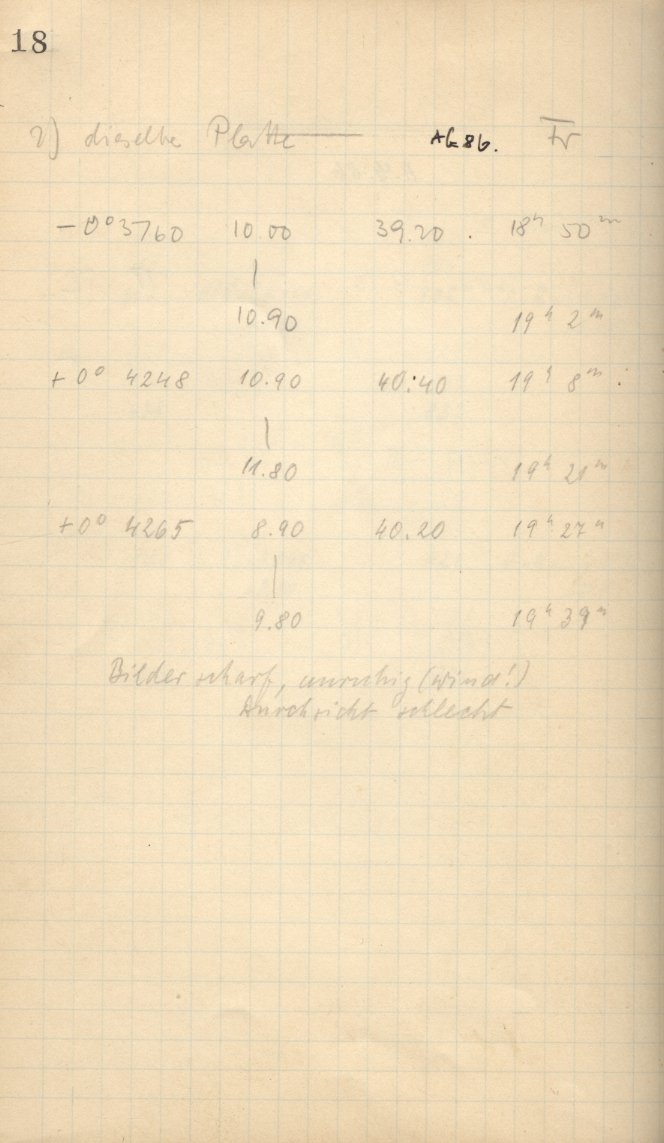 18
2) dieselbe Platte AG86. Fr
-0° 3760 10.00 39.20 . 18h 50m
|
10.90 19h 2m
+0° 4248 10.90 40.40 19h 8m
|
11.80 19h 21m
+0° 4265 8.90 40.20 19h 27m
|
9.80 19h 39m
Bilder scharf, unruhig (Wind!)
Durchsicht schlecht